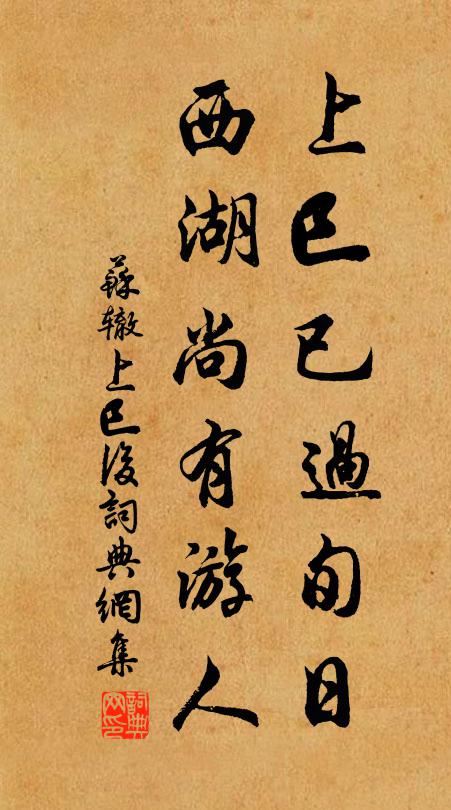 上巳已過旬日
西湖尚有游人
蘇辙上巳後詞典網集
詞典網印